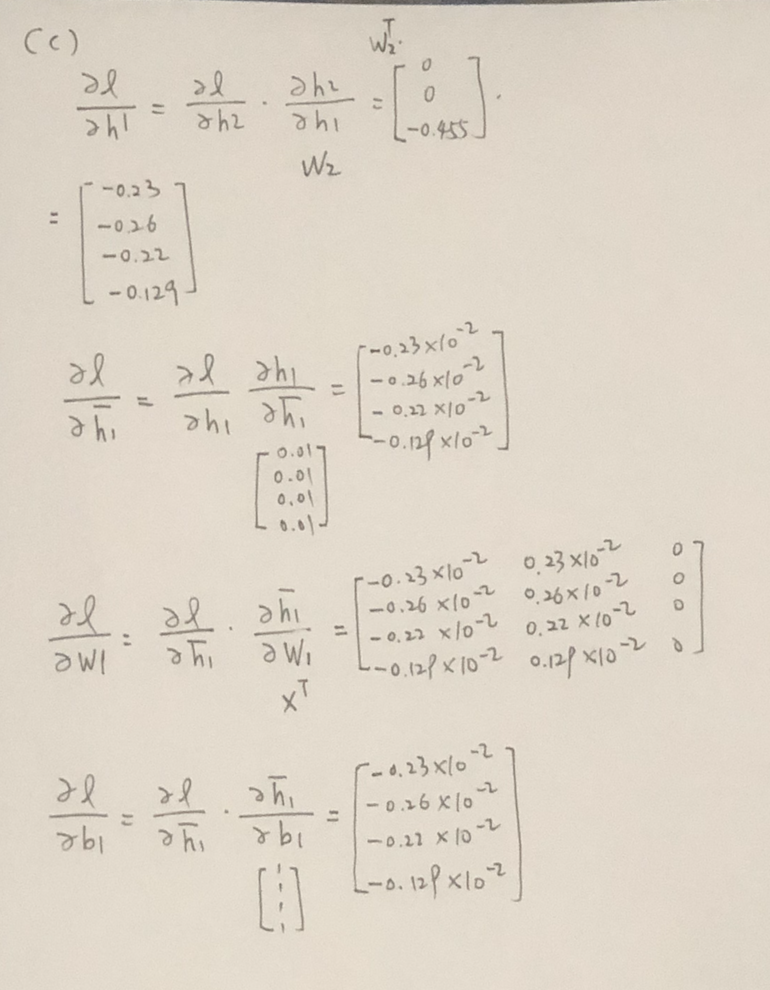 (c)
W₂ᵀ.
∂l/∂h1 = ∂l/∂h2 · ∂h2/∂h1 = [0 0 -0.455] .
W₂
= [-0.23 -0.26 -0.22 -0.129]
∂l/∂h̄₁ = ∂l/∂h₁ ∂h₁/∂h̄₁ = [-0.23×10⁻² -0.26×10⁻² -0.22×10⁻² -0.129×10⁻²]
[0.01 0.01 0.01 0.01]
∂l/∂W1 = ∂l/∂h̄₁ · ∂h̄₁/∂W₁ = [-0.23×10⁻² 0.23×10⁻² 0
-0.26×10⁻² 0.26×10⁻² 0
-0.22×10⁻² 0.22×10⁻² 0
-0.129×10⁻² 0.129×10⁻² 0]
xᵀ
∂l/∂b1 = ∂l/∂h̄₁ · ∂h̄₁/∂b₁ = [-0.23×10⁻² -0.26×10⁻² -0.22×10⁻² -0.129×10⁻²]
[1 1 1 1]